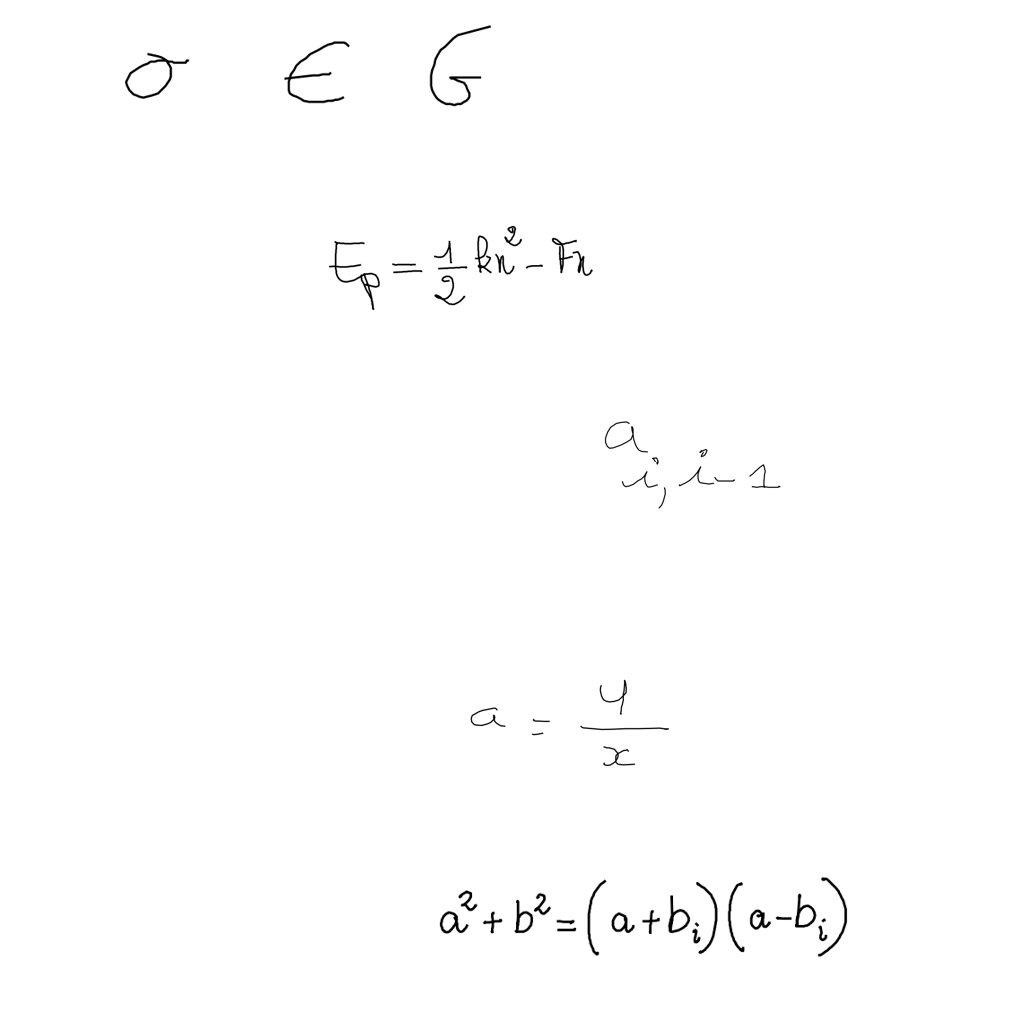 σ ∈ G
E_p = \frac{1}{2} kx^2 - Fx
a_{i,i-1}
a = \frac{4}{x}
a^2 + b^2 = (a + b_i)(a - b_i)